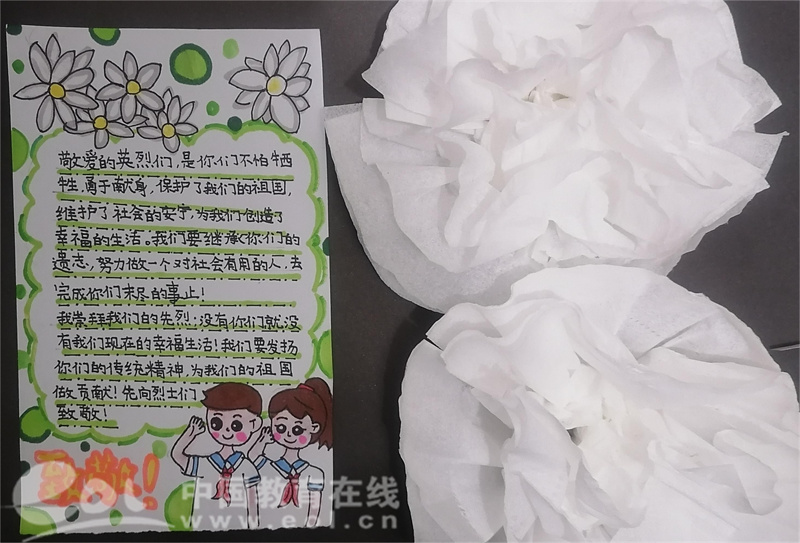 敬爱的英烈们，是你们不怕牺
牲，勇于献身，保护了我们的祖国，
维护了社会的安宁，为我们创造了
幸福的生活。我们要继承你们的
遗志，努力做一个对社会有用的人，去
完成你们未尽的事业！
我崇拜我们的先烈：没有你们就没
有我们现在的幸福生活！我们要发扬
你们的传统精神，为我们的祖国
做贡献！先向烈士们
致敬！
致敬！
eol 中国教育在线
www.eol.cn